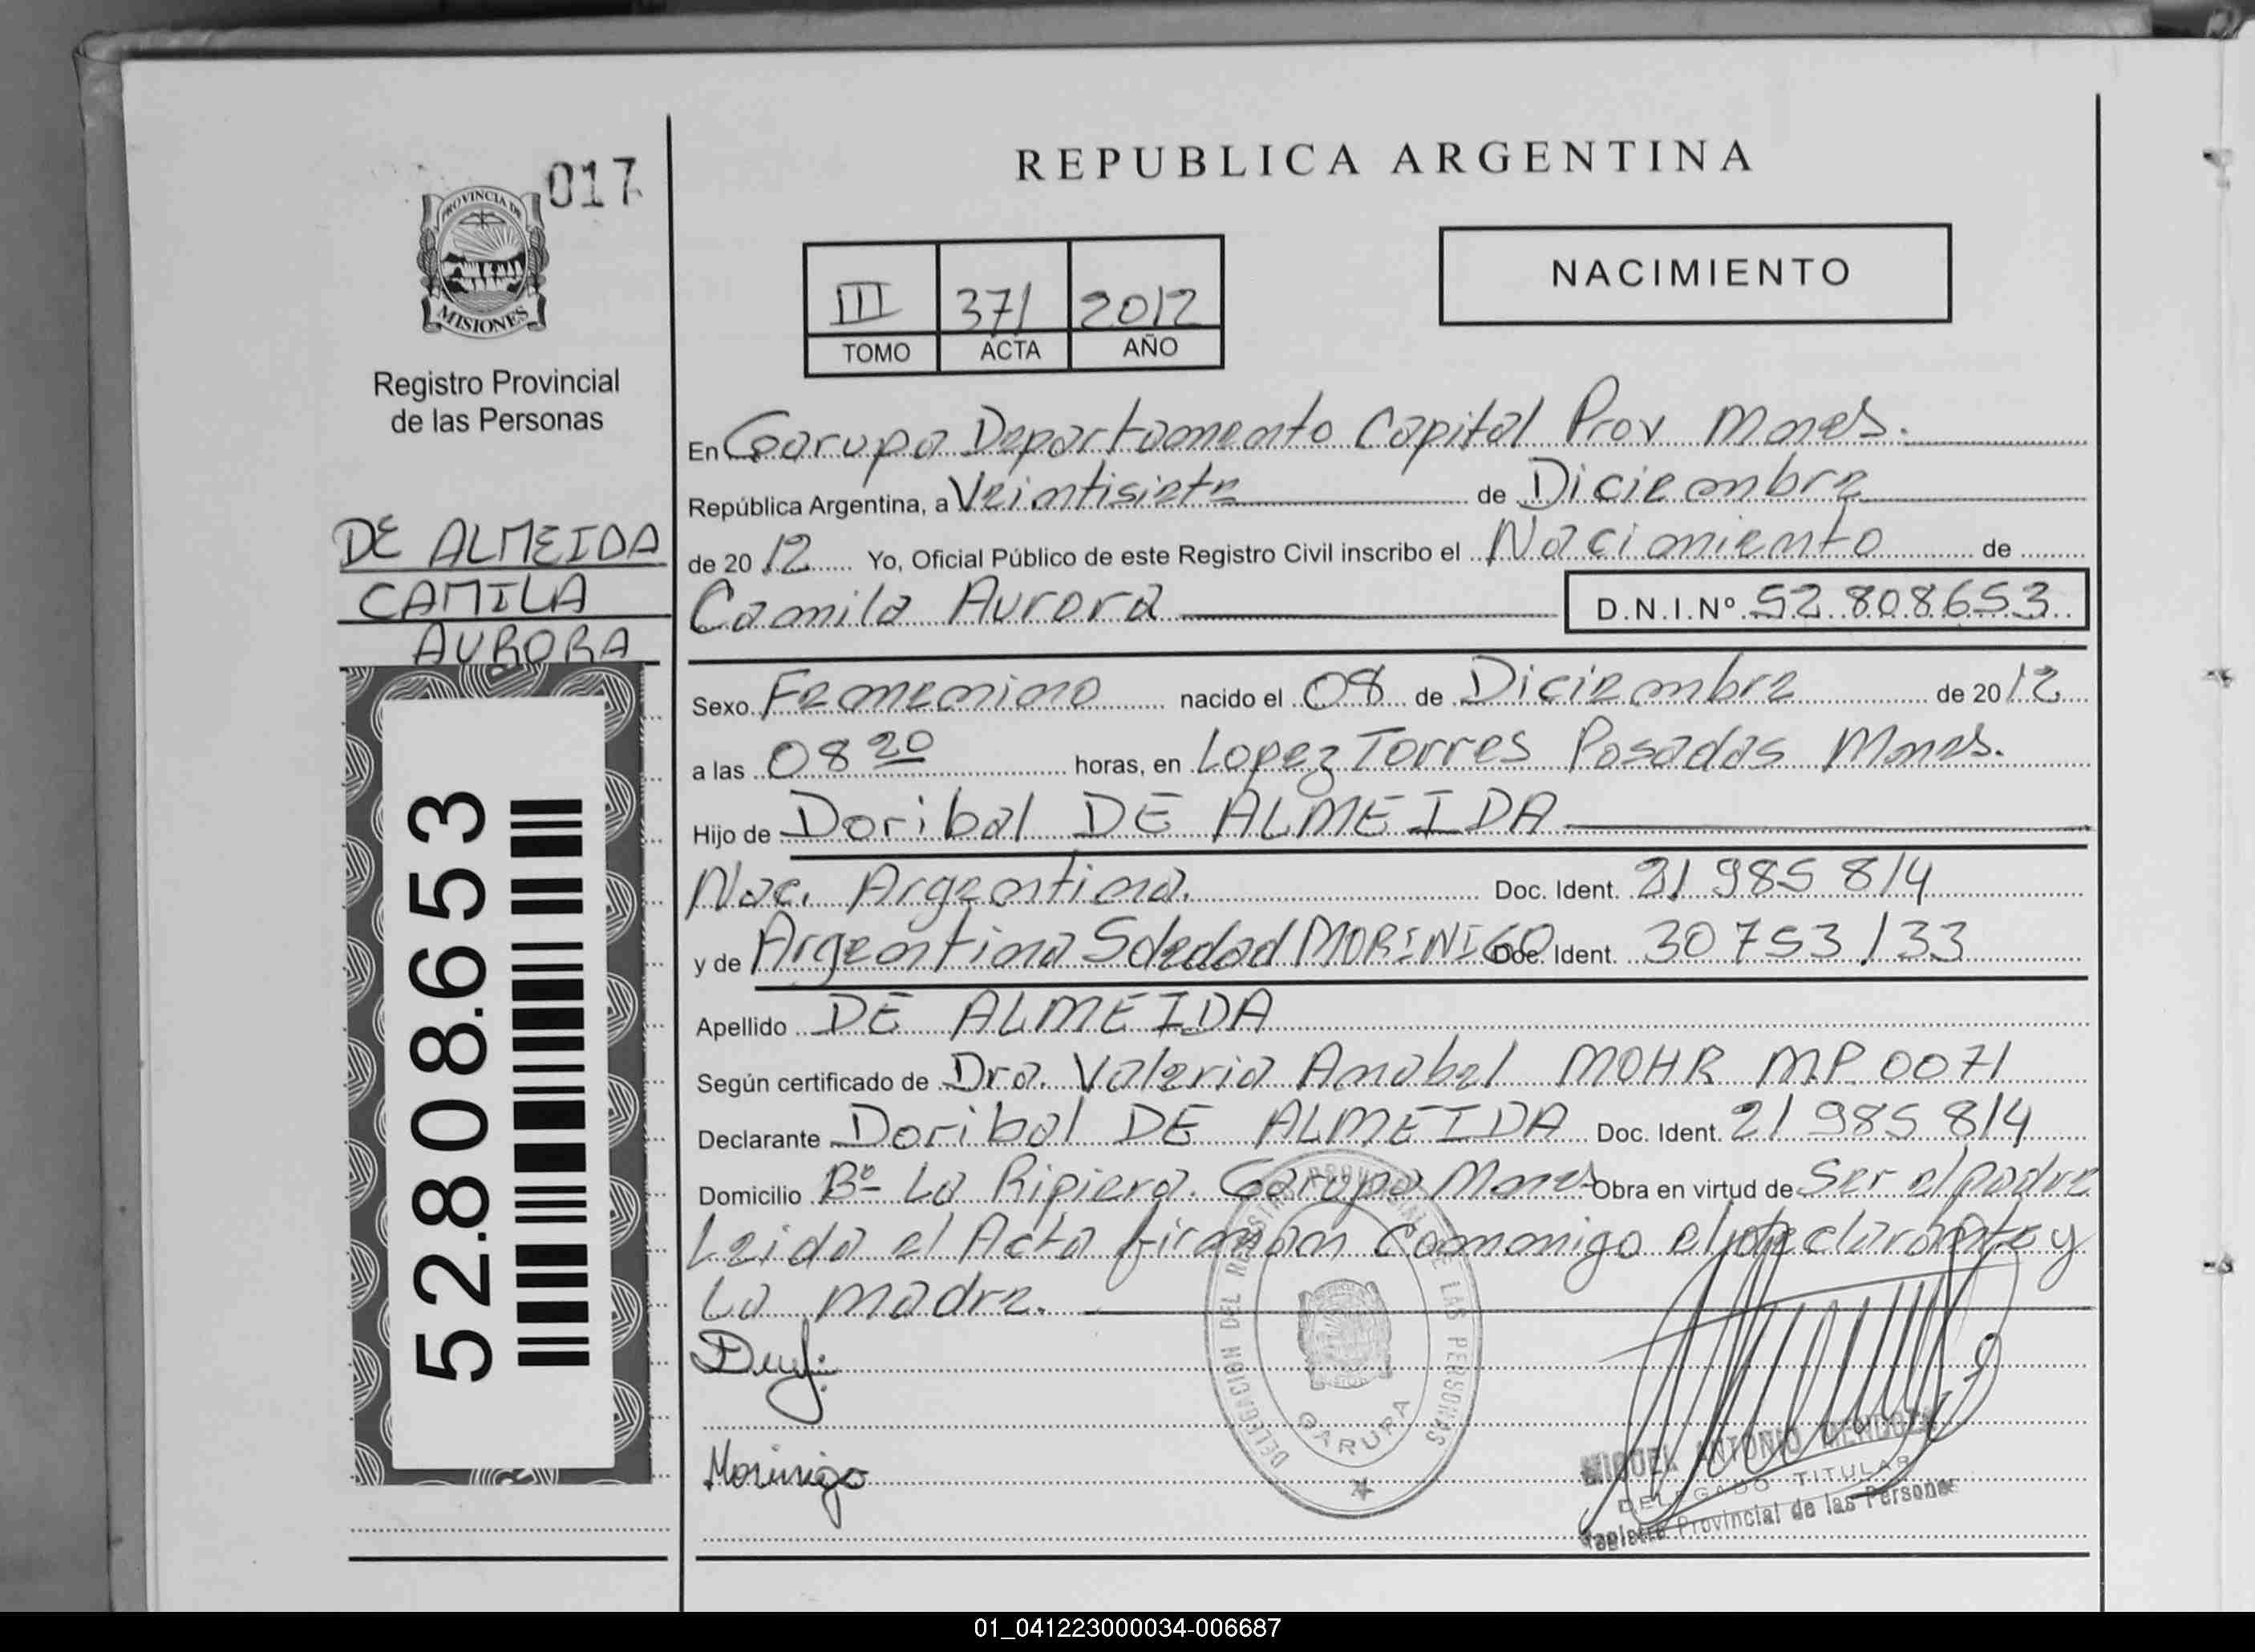 017
PROVINCIA DE
MISIONES
Registro Provincial
de las Personas
DE ALMEIDA
CAMILA
AURORA
52.808.653
REPUBLICA ARGENTINA
III 371 2012
TOMO ACTA AÑO
NACIMIENTO
En Garupa Departamento Capital Prov Mnes.
República Argentina, a Veintisiete de Diciembre
de 2012 Yo, Oficial Público de este Registro Civil inscribo el Nacimiento de
Camila Aurora D.N.I.Nº 52.808653
Sexo Femenino nacido el 08 de Diciembre de 2012
a las 08 20 horas, en Lopez Torres Posadas Mnes.
Hijo de Doribal DE ALMEIDA
Nac. Argentina. Doc. Ident. 21 985 814
y de Argentina Soledad MORINIGO Doc. Ident. 30 753 133
Apellido DE ALMEIDA
Según certificado de Dra. Valeria Anabel MOHR M.P. 0071
Declarante Doribal DE ALMEIDA Doc. Ident. 21 985 814
Domicilio Bº La Ripiera. Garupa Mnes Obra en virtud de Ser el padre
Leida el Acta firman Conmigo el declarante y
La madre.
Morinigo
DELEGACION DEL REGISTRO PROVINCIAL DE LAS PERSONAS
GARUPA
MIGUEL ANTONIO MENDOZA
DELEGADO TITULAR
Registro Provincial de las Personas
01_041223000034-006687